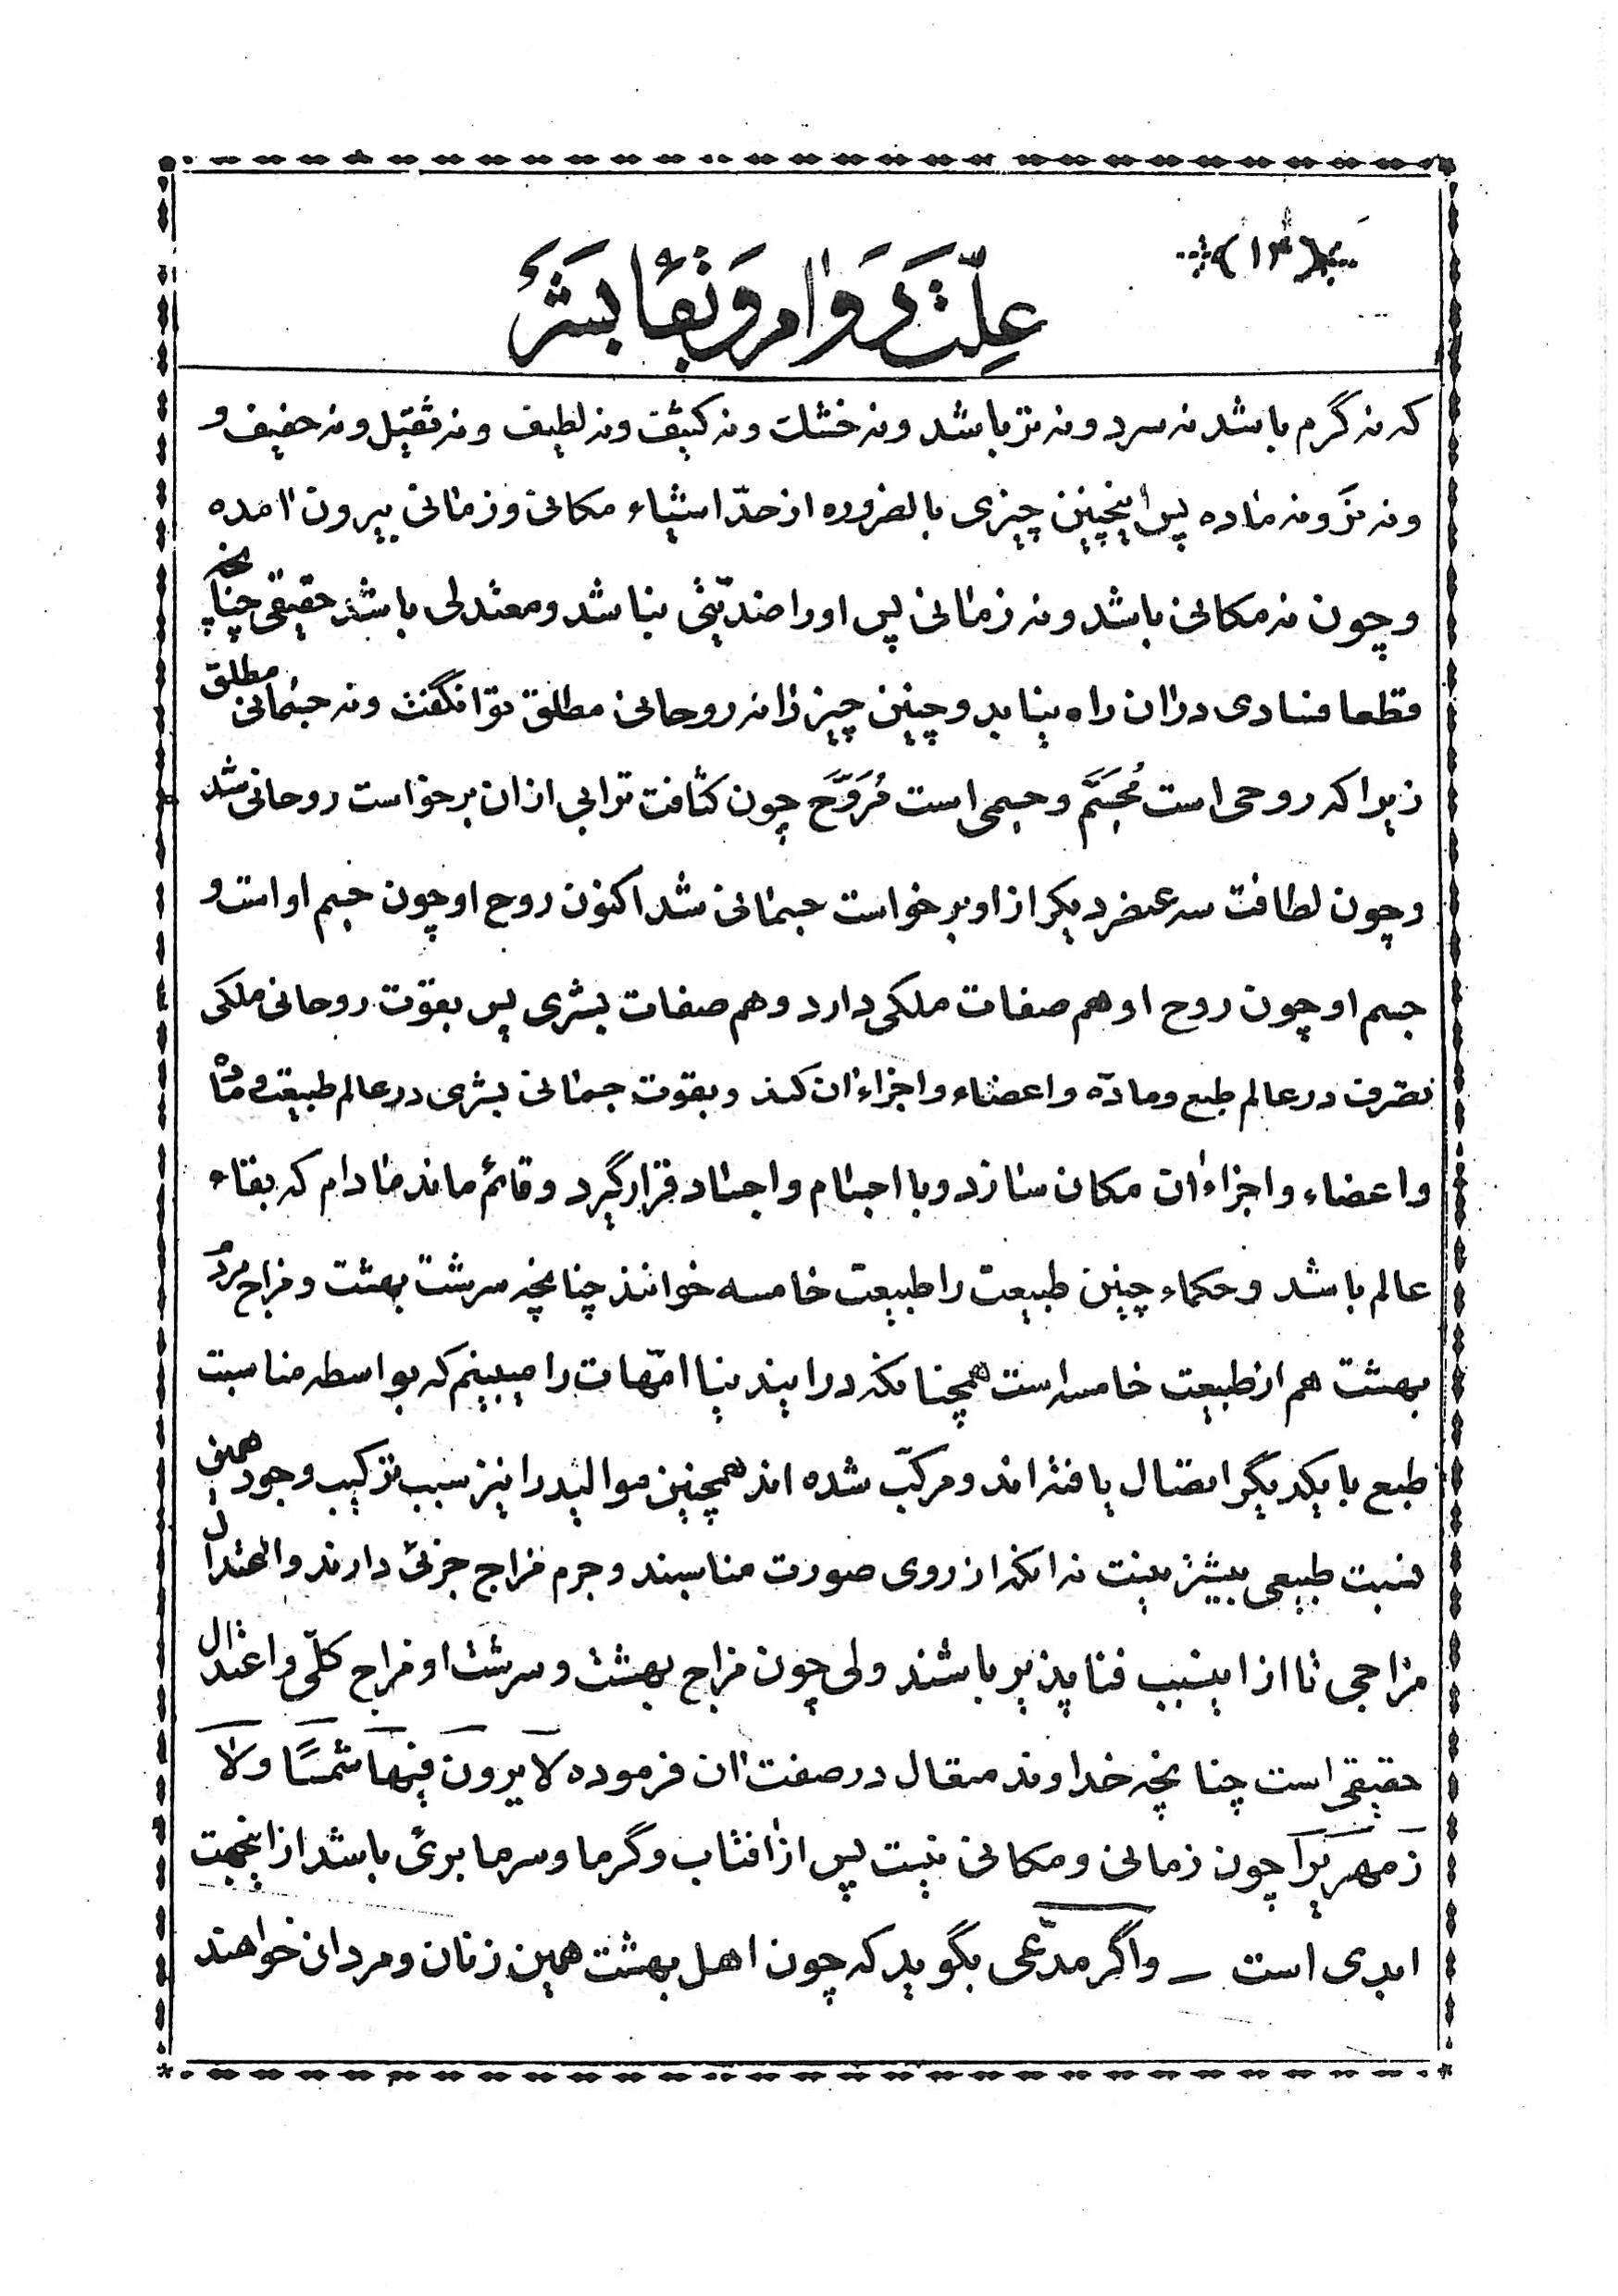 (۱۳)
عِلَّت دَوٰام وَ بَقٰا بَشَر
که نه گرم باشد نه سرد و نه تر باشد و نه خشك و نه کثیف و نه لطیف و نه ثقیل و نه خفیف و
و نه نر و نه مٰاده پس اینچنین چیزی بالضروره از حدّ اشیاء مکانی و زمانی بیرون اٰمده
و چون نه مکانی باشد و نه زمٰانی پس او را ضدیّتی نباشد و معتدلی باشد حقیقی چنانچه
قطعا فسادی در اٰن راه نیابد و چنین چیز را نه روحانی مطلق توانگفت و نه جسمانی مطلق
زیرا که روحی است مُجَسَّم و جسمی است مُرَوَّح چون کثافت ترابی از ان برخواست روحانی شد
و چون لطافت سه عنصر دیکر از او برخواست جسمانی شد اکنون روح او چون جسم او است و
جسم او چون روح او هم صفات ملکی دارد و هم صفات بشری پس بقوّت روحانی ملکی
تصرف در عالم طبع و مادّه و اعضاء و اجزاء اٰن کند و بقوت جسمٰانی بشری در عالم طبیعت و مٰادّه
و اعضاء و اجزاء اٰن مکان سٰازد و با اجسٰام و اجسٰاد قرار گیرد و قائم ماند مٰادام که بقٰاء
عالم باشد و حکماء چنین طبیعت را طبیعت خامسه خوانند چنانچه سرشت بهشت و مزاج مردُم
بهشت هم از طبیعت خامسه است همچنانکه در این دنیا امّهات را میبینم که بواسطه مناسبت
طبع با یکدیگر اتصال یافته اند و مرکّب شده اند همچنین موالید را نیز سبب ترکیب وجود همین
نسبت طبیعی بیشتر نیست نه انکه از روی صورت مناسبند و جرم مزاج جزئی دارند و اعتدال
مزاجی تا از اینسبب فنا پذیر باشند ولی چون مزاج بهشت و سرشت او مزاج کلّی و اعتدال
حقیقی است چنانچه خداوند متعال در صفت اٰن فرموده لاٰ یرون فیهاَ شَمسًا و لاَ
زَمهریراً چون زمانی و مکانی نیست پس از اٰفتاب و گرما و سرما بریٔ باشد از اینجهت
ابدی است ــ و اگر مدّعی بگوید که چون اهل بهشت همین زنان و مردانی خواهند